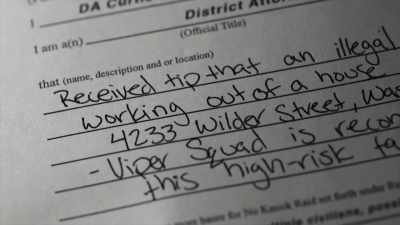 I DA
District
(Official Title)
I am a(n)
that (name, description and or location)
Received tip that an illegal
working out of a house
4233 Wilder Street,
- Viper Squad is
this high-risk
for No Knock Raid set forth under
civilians,